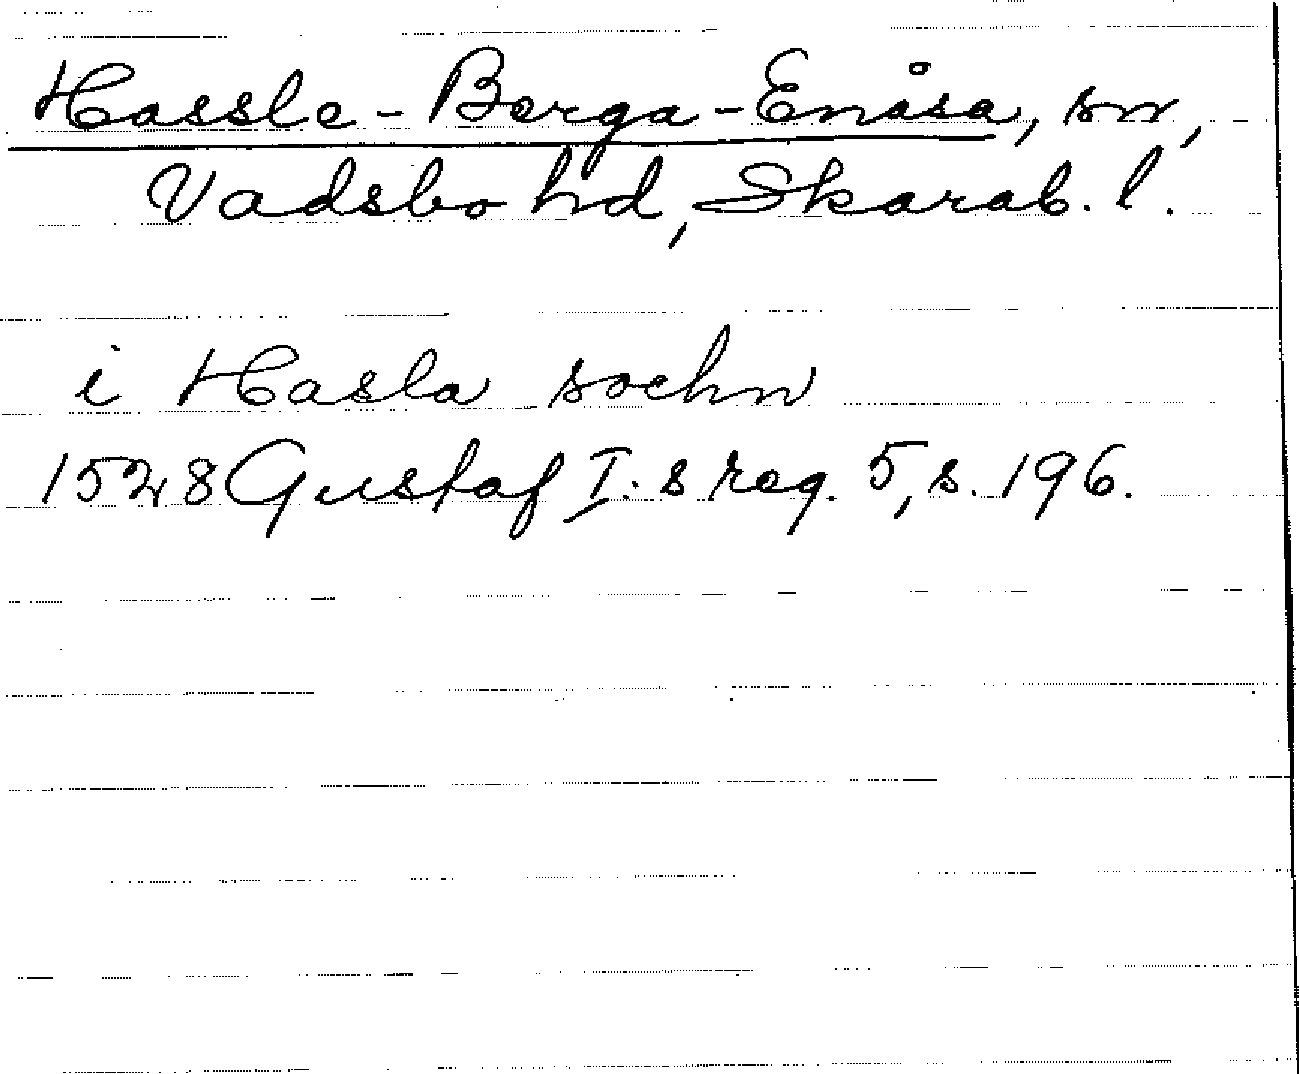 Hassle-Berga-Enåsa, sn,
Vadsbo hd, Skarab. l.
i Hasla sochn
1528 Gustaf I.s reg. 5, s. 196.